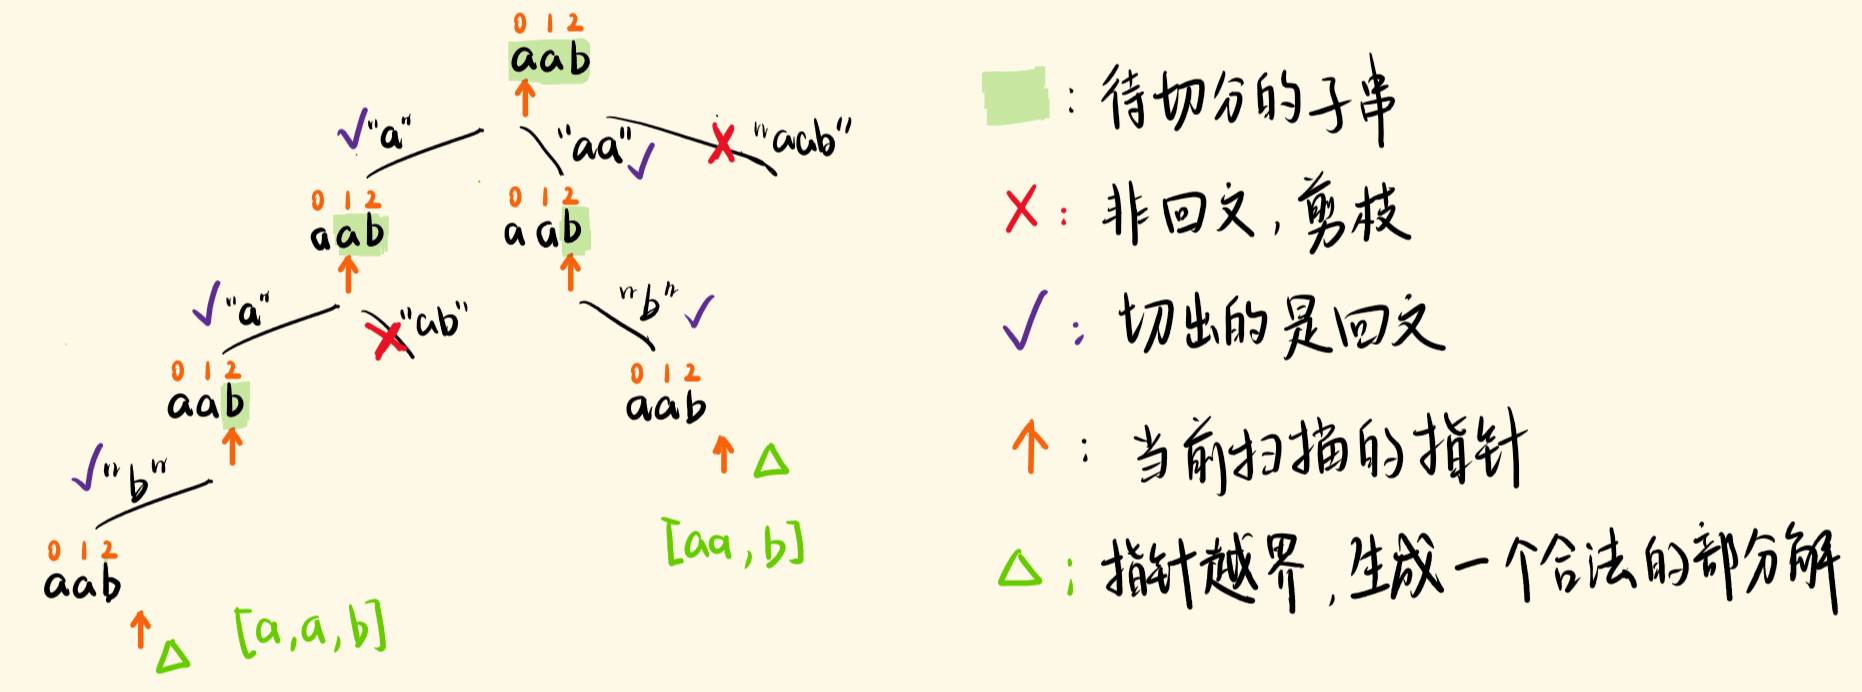 0 1 2
aab
"a"
"aa"
"aab"
0 1 2
aab
0 1 2
aab
"a"
"ab"
"b"
0 1 2
aab
0 1 2
aab
"b"
[aa,b]
0 1 2
aab
[a,a,b]
：待切分的子串
✗：非回文,剪枝
✓：切出的是回文
↑：当前扫描的指针
△：指针越界,生成一个合法的部分解